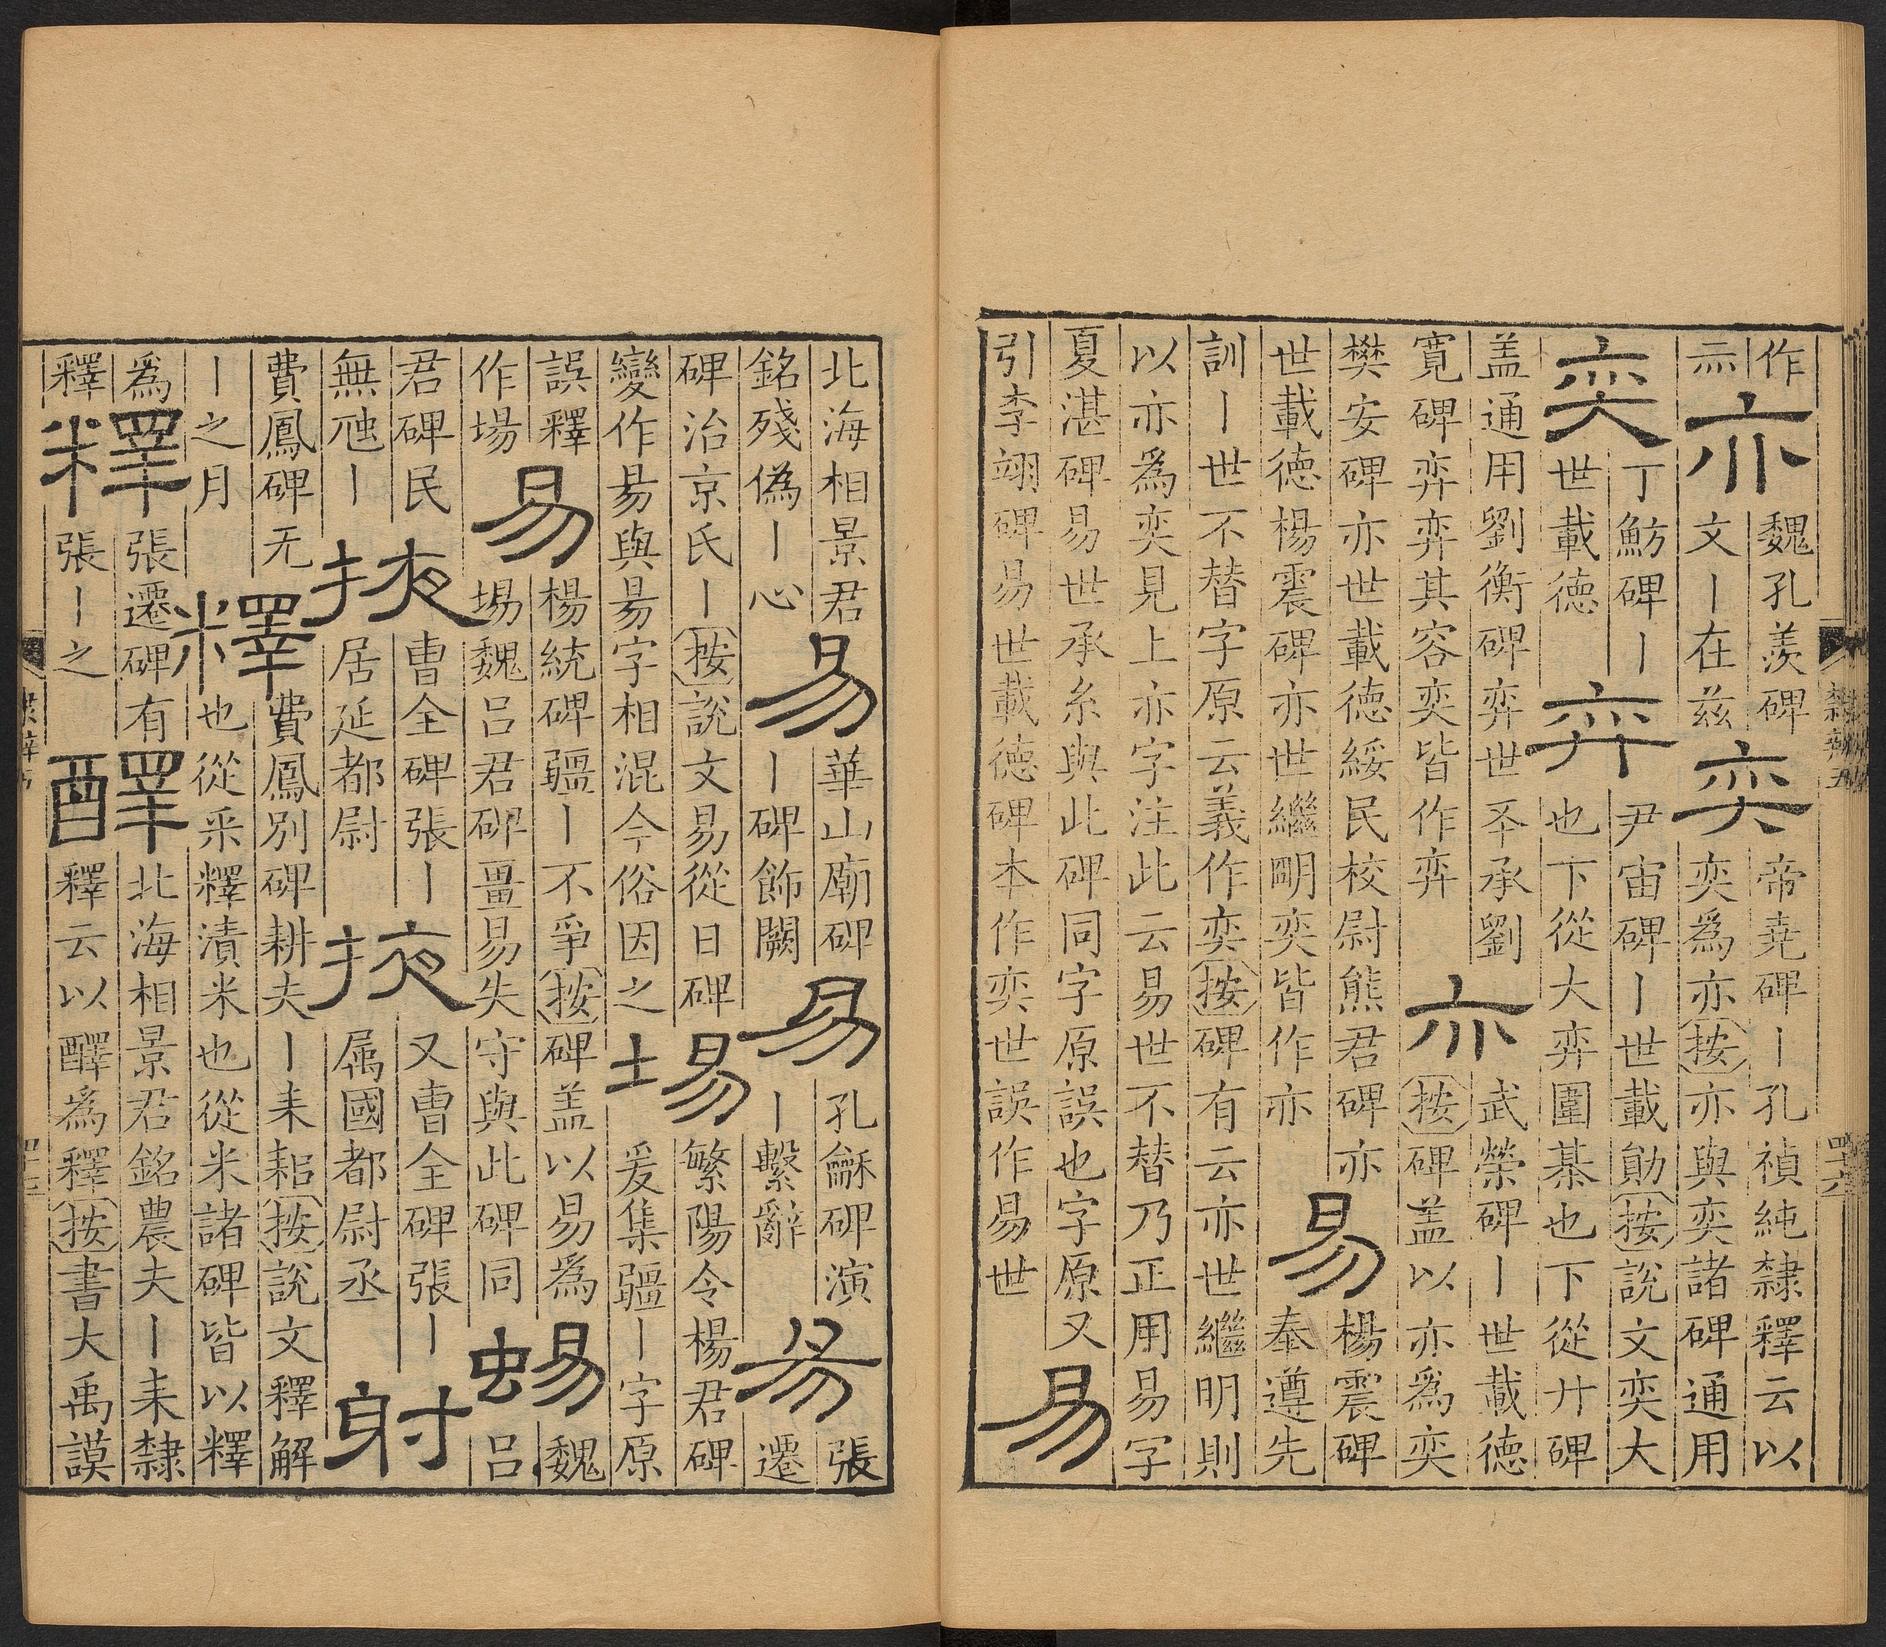 作亦亦魏孔羨碑文丨在兹奕帝堯碑丨孔禎純隸釋云以奕爲亦按亦與奕諸碑通用
奕丁魴碑丨世載德弈尹宙碑丨世載勛按說文奕大也下從大弈圍棊也下從廾碑
盖通用劉衡碑弈世丕承劉寬碑弈弈其容奕皆作弈亦武榮碑丨世載德按碑盖以亦爲奕
樊安碑亦世載德綏民校尉熊君碑亦世載德楊震碑亦世繼明奕皆作亦易楊震碑奉遵先
訓丨世不替字原云義作奕按碑有云亦世繼明則以亦爲奕見上亦字注此云易世不替乃正用易字
夏湛碑易世承糸與此碑同字原誤也字原又引李翊碑易世載德碑本作奕世誤作易世易
隸辨五
四六
北海相景君銘殘僞丨心易華山廟碑丨碑飾闕易孔龢碑演丨繫辭昜張遷
碑治京氏丨按說文易從日碑變作昜與昜字相混今俗因之埸繁陽令楊君碑爰集疆丨字原
誤釋作場易楊統碑疆丨不爭按碑盖以易爲埸魏呂君碑畺易失守與此碑同蜴魏呂
君碑民無虺丨掖曹全碑張丨居延都尉掖又曹全碑張丨属國都尉丞射
費鳳碑无丨之月釋費鳳別碑耕夫丨耒耜按說文釋解也從釆釋漬米也從米諸碑皆以釋
爲釋釋張遷碑有張丨之醳北海相景君銘農夫丨耒隸釋云以醳爲釋按書大禹謨